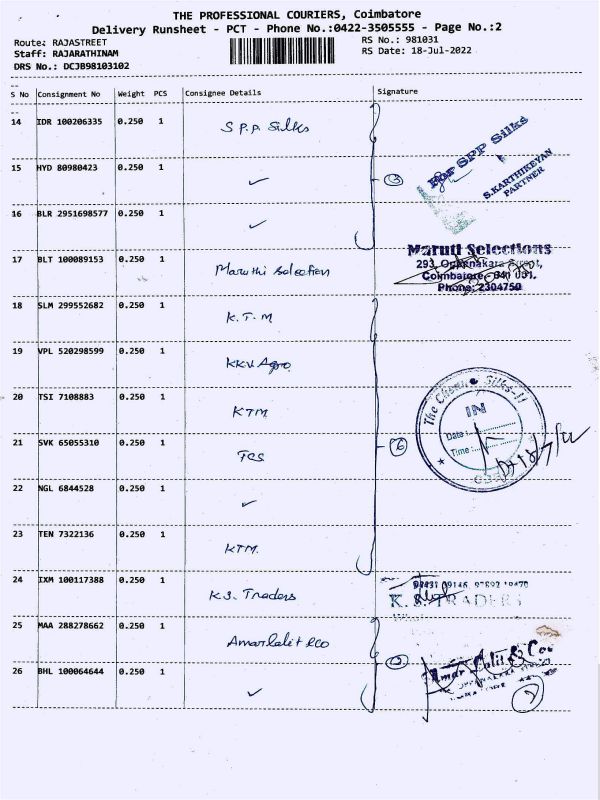 THE PROFESSIONAL COURIERS, Coimbatore
Delivery Runsheet - PCT - Phone No.:0422-3505555 - Page No.:2
Route: RAJASTREET
Staff: RAJARATHINAM
DRS No.: DCJB98103102
RS No.: 981031
RS Date: 18-Jul-2022
S No Consignment No Weight PCS Consignee Details Signature
14 IDR 100206335 0.250 1 S P.P. Silks
For SPP Silks
S.KARTHIKEYAN
PARTNER
15 HYD 80980423 0.250 1 ✓
3
16 BLR 2951698577 0.250 1 ✓
17 BLT 100089153 0.250 1 Maruthi Selection
Maruti Selections
293, Street,
Coimbatore, 641 001.
Phone: 2304750
18 SLM 299552682 0.250 1 K.T.M
19 VPL 520298599 0.250 1 KKV Agro
20 TSI 7108883 0.250 1 KTM
The Chennai Silks-II
IN
Date :
Time :
21 SVK 65055310 0.250 1 TCS
6
22 NGL 6844528 0.250 1 ✓
23 TEN 7322136 0.250 1 KTM.
24 IXM 100117388 0.250 1 K.S. Traders
K. S. TRADERS
25 MAA 288278662 0.250 1 Amarlalit &co
2
Amar Lalit & Co
26 BHL 100064644 0.250 1 ✓
2